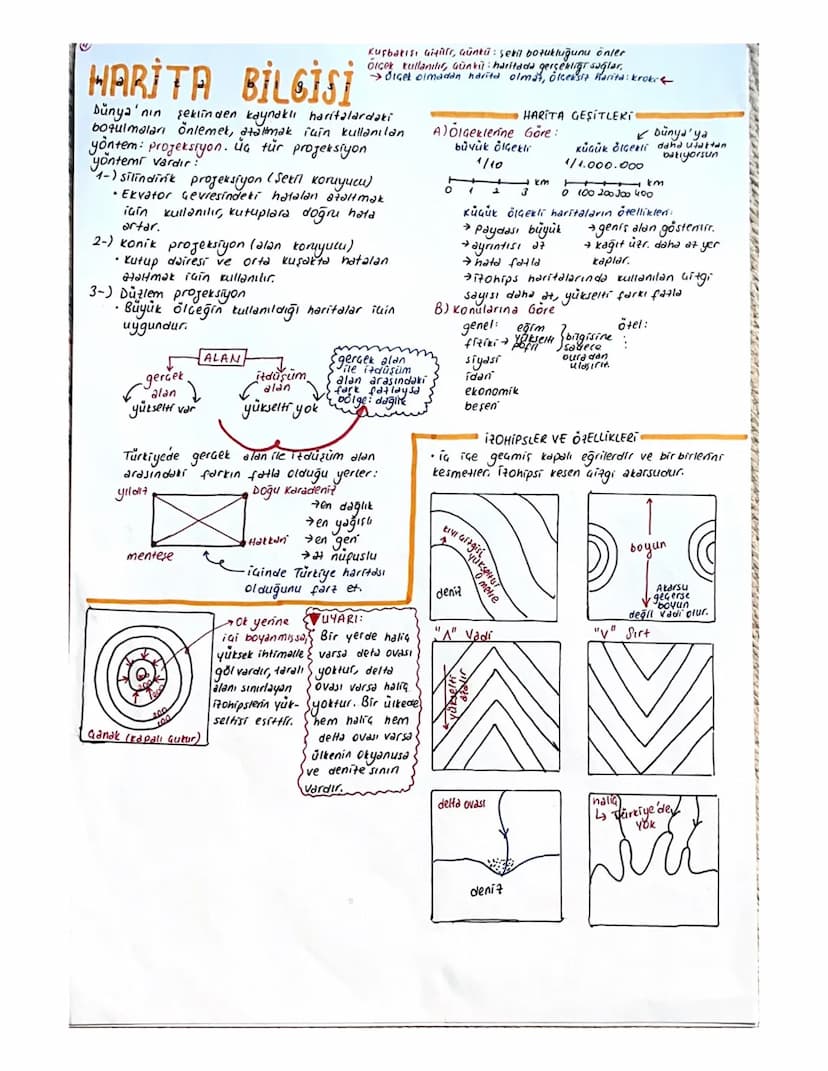 Kuşbakışı çizilir, çünkü: şekil bozukluğunu önler
Ölçek kullanılır, çünkü: haritada gerçekliği sağlar.
→ Ölçek olmadan harita olmaz, ölçeksiz harita: kroki ←
HARİTA BİLGİSİ
harita bilgisi
Dünya'nın şeklinden kaynaklı haritalardaki
bozulmaları önlemek, azaltmak için kullanılan
yöntem: projeksiyon. Üç tür projeksiyon
yöntemi vardır:
1-) Silindirik projeksiyon (Şekil koruyucu)
• Ekvator çevresindeki hataları azaltmak
için kullanılır, kutuplara doğru hata
artar.
2-) Konik projeksiyon (alan koruyucu)
• Kutup dairesi ve orta kuşakta hataları
azaltmak için kullanılır.
3-) Düzlem projeksiyon
• Büyük ölçeğin kullanıldığı haritalar için
uygundur.
ALAN
gerçek alan
yükselti var
izdüşüm alan
yükselti yok
gerçek alan
ile izdüşüm
alan arasındaki
fark fazlaysa
bölge: dağlık
Türkiye'de gerçek alan ile izdüşüm alan
arasındaki farkın fazla olduğu yerler:
yıldız
Doğu Karadeniz
menteşe
Hakkari
→ en dağlık
→ en yağışlı
→ en geri
→ az nüfuslu
içinde Türkiye haritası
olduğunu farz et.
HARİTA ÇEŞİTLERİ
A) Ölçeklerine Göre:
büyük ölçekli
1/10
0 1 2 3 km
küçük ölçekli
1/1.000.000
0 100 200 300 400 km
Dünya'ya
daha uzaktan
bakıyorsun
Küçük ölçekli haritaların özellikleri:
→ Paydası büyük
→ geniş alan gösterilir.
→ ayrıntısı az
→ kağıt üzr. daha az yer
kaplar.
→ hata fazla
→ izohips haritalarında kullanılan çizgi
sayısı daha az, yükselti farkı fazla
B) Konularına Göre
genel:
özel:
fiziki →
eğim
yükselti
profil
bilgisine
sadece
buradan
ulaşırız.
siyasi
idari
ekonomik
beşeri
İZOHİPSLER VE ÖZELLİKLERİ
• iç içe geçmiş kapalı eğrilerdir ve birbirlerini
kesmezler. İzohipsi kesen çizgi akarsudur.
kıyı çizgisi
yükseltisi
0 metre
deniz
boyun
Akarsu
geçerse
boyun
değil vadi olur.
"Λ" Vadi
yükselti
azalır
"V" Sırt
delta ovası
deniz
haliç
↳ Türkiye'de
yok
200
100
Çanak (kapalı çukur)
→ Ok yerine
içi boyanmışsa,
yüksek ihtimalle
göl vardır, taralı
alanı sınırlayan
izohipslerin yük-
seltisi eşittir.
UYARI:
Bir yerde haliç
varsa delta ovası
yoktur, delta
ovası varsa haliç
yoktur. Bir ülkede
hem haliç hem
delta ovası varsa
ülkenin okyanusa
ve denize sınırı
vardır.